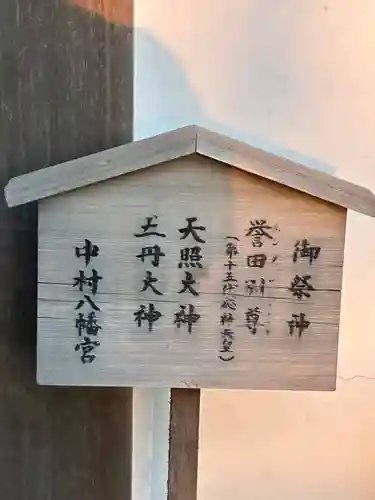 御祭神
誉田別尊
(第十五代応神天皇)
天照大神
土丹大神
中村八幡宮